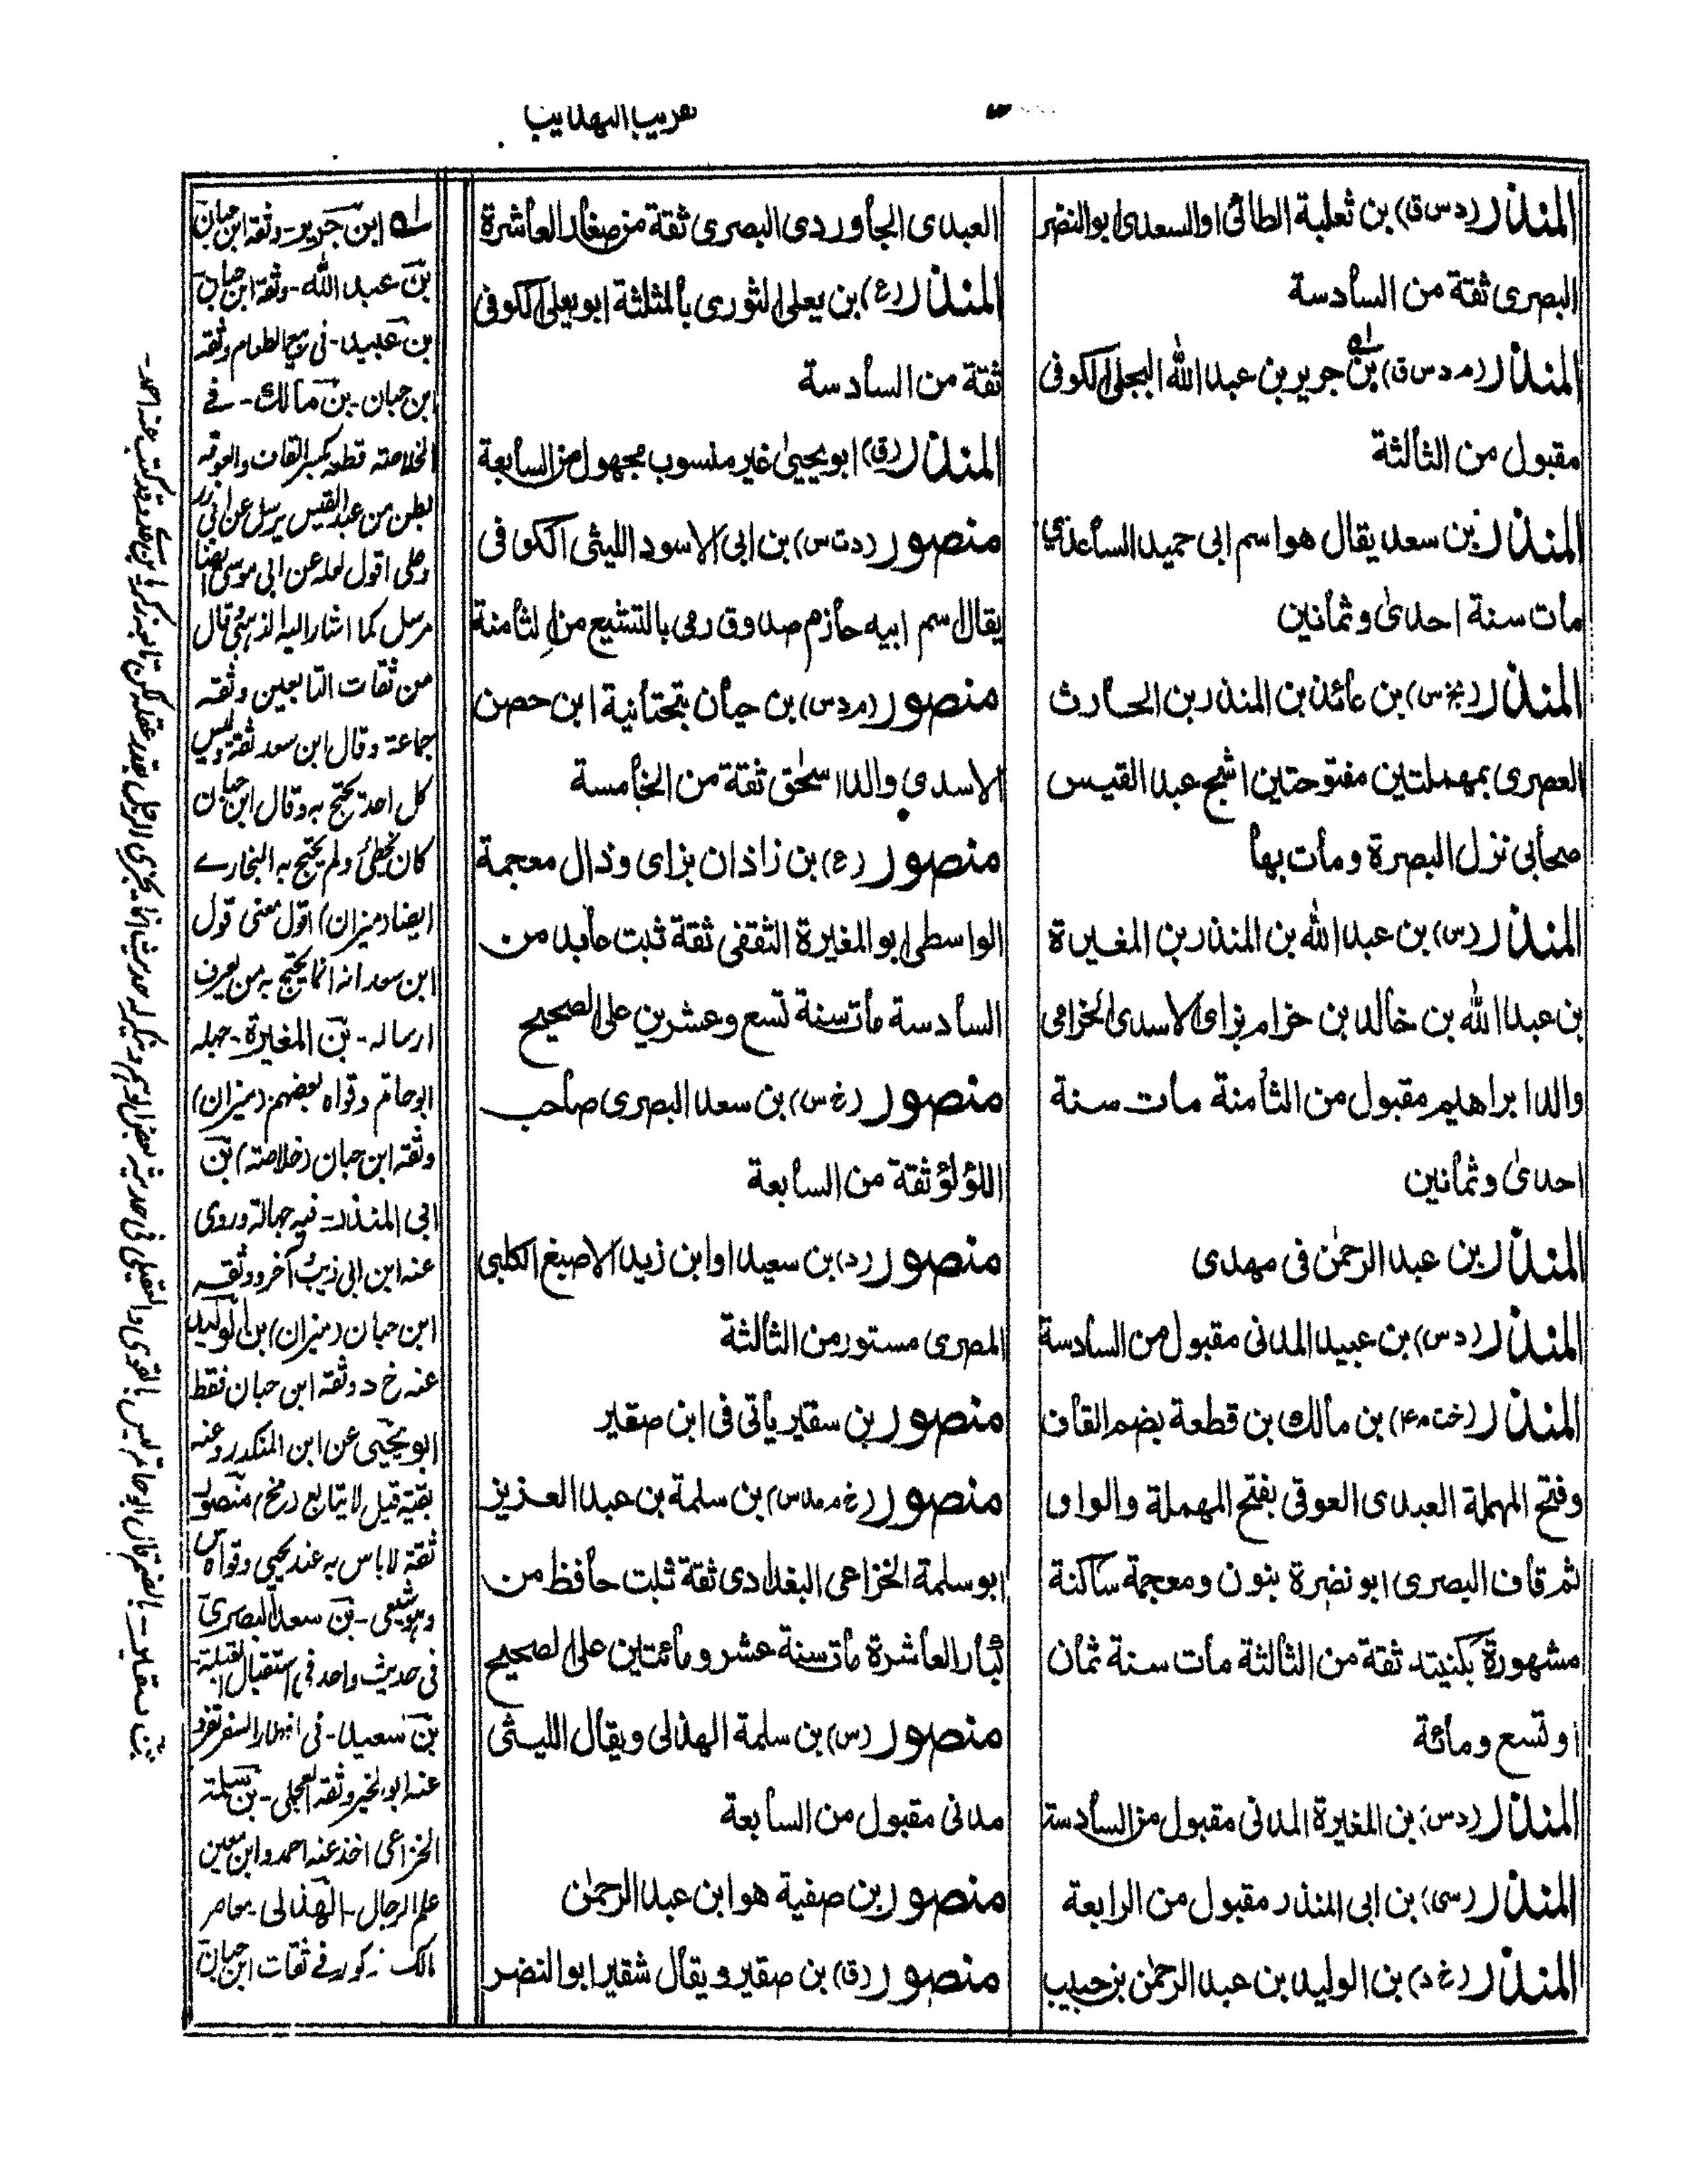 تقريب التهذيب
المنذر (د س ق) بن ثعلبة الطائى او السعدى ابو النضر
البصرى ثقة من السأدسة
المنذر (م د س ق) بن جرير بن عبد الله البجلى الكوفى
مقبول من الثالثة
المنذر بن سعد يقال هو اسم ابى حميد الساعدي
مات سنة احدىٰ وثمانين
المنذر (بخ س) بن عائذ بن المنذر بن الحارث
العصرى بمهملتين مفتوحتين اشج عبد القيس
صحابى نزل البصرة ومات بها
المنذر (س) بن عبد الله بن المنذر بن المغيرة
بن عبد الله بن خالد بن خزام بزاى الاسدى الخزامى
والد ابراهيم مقبول من الثامنة مات سنة
احدىٰ وثمانين
المنذر بن عبد الرحمٰن فى مهدى
المنذر (د س) بن عبيد المدنى مقبول من السادسة
المنذر (خت م ٤) بن مالك بن قطعة بضم القاف
وفتح المهملة العبدى العوقى بفتح المهملة والواو
ثم قاف البصرى ابو نضرة بنون ومعجمة ساكنة
مشهورة بكنيته ثقة من الثالثة مات سنة ثمان
او تسع ومائة
المنذر (د س) بن المغيرة المدنى مقبول من السادسة
المنذر (سى) بن ابى المنذر مقبول من الرابعة
المنذر (خ د) بن الوليد بن عبد الرحمٰن بن حبيب
العبدى الجاوردى البصرى ثقة من صغار العاشرة
المنذر (ع) بن يعلى الثورى بالمثلثة ابو يعلى الكوفى
ثقة من السادسة
المنذر (ق) ابو يحيىٰ غير منسوب مجهول من السابعة
منصور (د ت س) بن ابى الاسود الليثى الكوفى
يقال اسم ابيه حازم صدوق رمى بالتشيع من الثامنة
منصور (م د س) بن حيان بتحتانية ابن حصن
الاسدي والد اسحٰق ثقة من الخامسة
منصور (ع) بن زاذان بزاى وذال معجمة
الواسطى ابو المغيرة الثقفى ثقة ثبت عابد من
السادسة مات سنة تسع وعشرين على الصحيح
منصور (خ س) بن سعد البصرى صاحب
اللؤلؤ ثقة من السابعة
منصور (د) بن سعيد او ابن زيد الاصبغ الكلبى
المصرى مستور من الثالثة
منصور بن سقير يأتى فى ابن صقير
منصور (خ م مد س) بن سلمة بن عبد العزيز
ابو سلمة الخزاعى البغدادى ثقة ثبت حافظ من
كبار العاشرة مات سنة عشر ومائتين على الصحيح
منصور (س) بن سلمة الهذلى ويقال الليثى
مدنى مقبول من السابعة
منصور بن صفية هو ابن عبد الرحمٰن
منصور (ق) بن صقير ويقال شقير ابو النضر
له ابن جرير - وثقه ابن حبان
بن عبد الله - وثقه ابن حبان
بن عبيد - فى بيع الطعام وثقه
ابن حبان - بن مالك - فے
الخلاصة قطعه بكسر القاف والعوقه
بطن من عبد القيس يرسل عن ابى ذر
وعلى اقول لعله عن ابى موسى ايضا
مرسل كما اشار اليه الذهبى قال
من ثقات التابعين وثقه
جماعة وقال ابن سعد ثقة وليس
كل احد يحتج به وقال ابن حبان
كان يخطئ ولم يحتج به البخارے
ايضا (ميزان) اقول معنى قول
ابن سعد انه انما يحتج به من يعرف
ارساله - بن المغيرة - جهله
ابو حاتم وقواه بعضهم (ميزان)
وثقه ابن حبان (خلاصة) بن
ابى المنذر - فيه جهالة وروى
عنه ابن ابى ذيب آخر ووثقه
ابن حبان (ميزان) بن الوليد
عنه خ د وثقه ابن حبان فقط
ابو يحيى عن ابن المنكدر وعنه
بقية قيل لا يتابع منصور
ثقة لا باس به عند يحيى وقواه س
وهو شيعى - بن سعد البصرى
فى حديث واحد فى استقبال القبلة -
بن سعيد - فى افطار السفر تفرد
عنه ابو الخير وثقه العجلى - بن سلمة
الخزاعى اخذ عنه احمد وابن معين
علم الرجال - الهذلى - معاصر
مالك مذكور فے ثقات ابن حبان